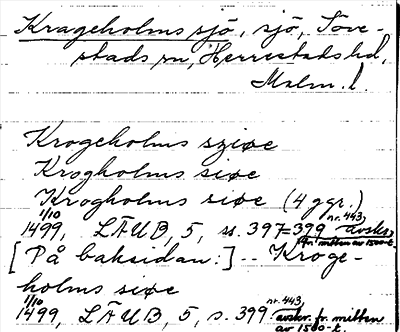 Krageholms sjö, sjö, Söve-
stads sn, Herrestads hd,
Malm. l.
Krogeholms sziøe
Krogholms siøe
Krogholms siøe (4 ggr.)
1/10 1499, LÄUB, 5, s. 397=399 nr. 443, avskr.
fr. mitten av 1500-t.
[På baksidan:] -- Kroge-
holms siøe
1/10 1499, LÄUB, 5, s. 399 nr. 443, avskr. fr. mitten
av 1500-t.